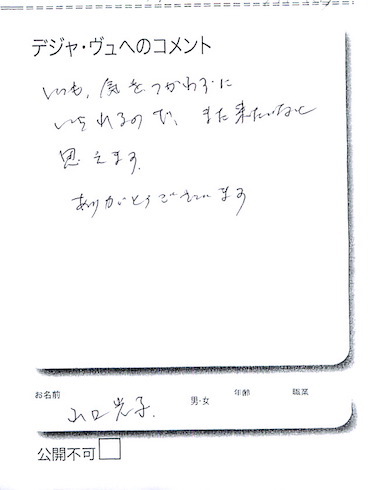 デジャ・ヴュへのコメント
いつも、気をつかわずに
いられるので、また来たいなと
思えます。
ありがとうございます
お名前
男・女
年齢
職業
山口光子.
公開不可